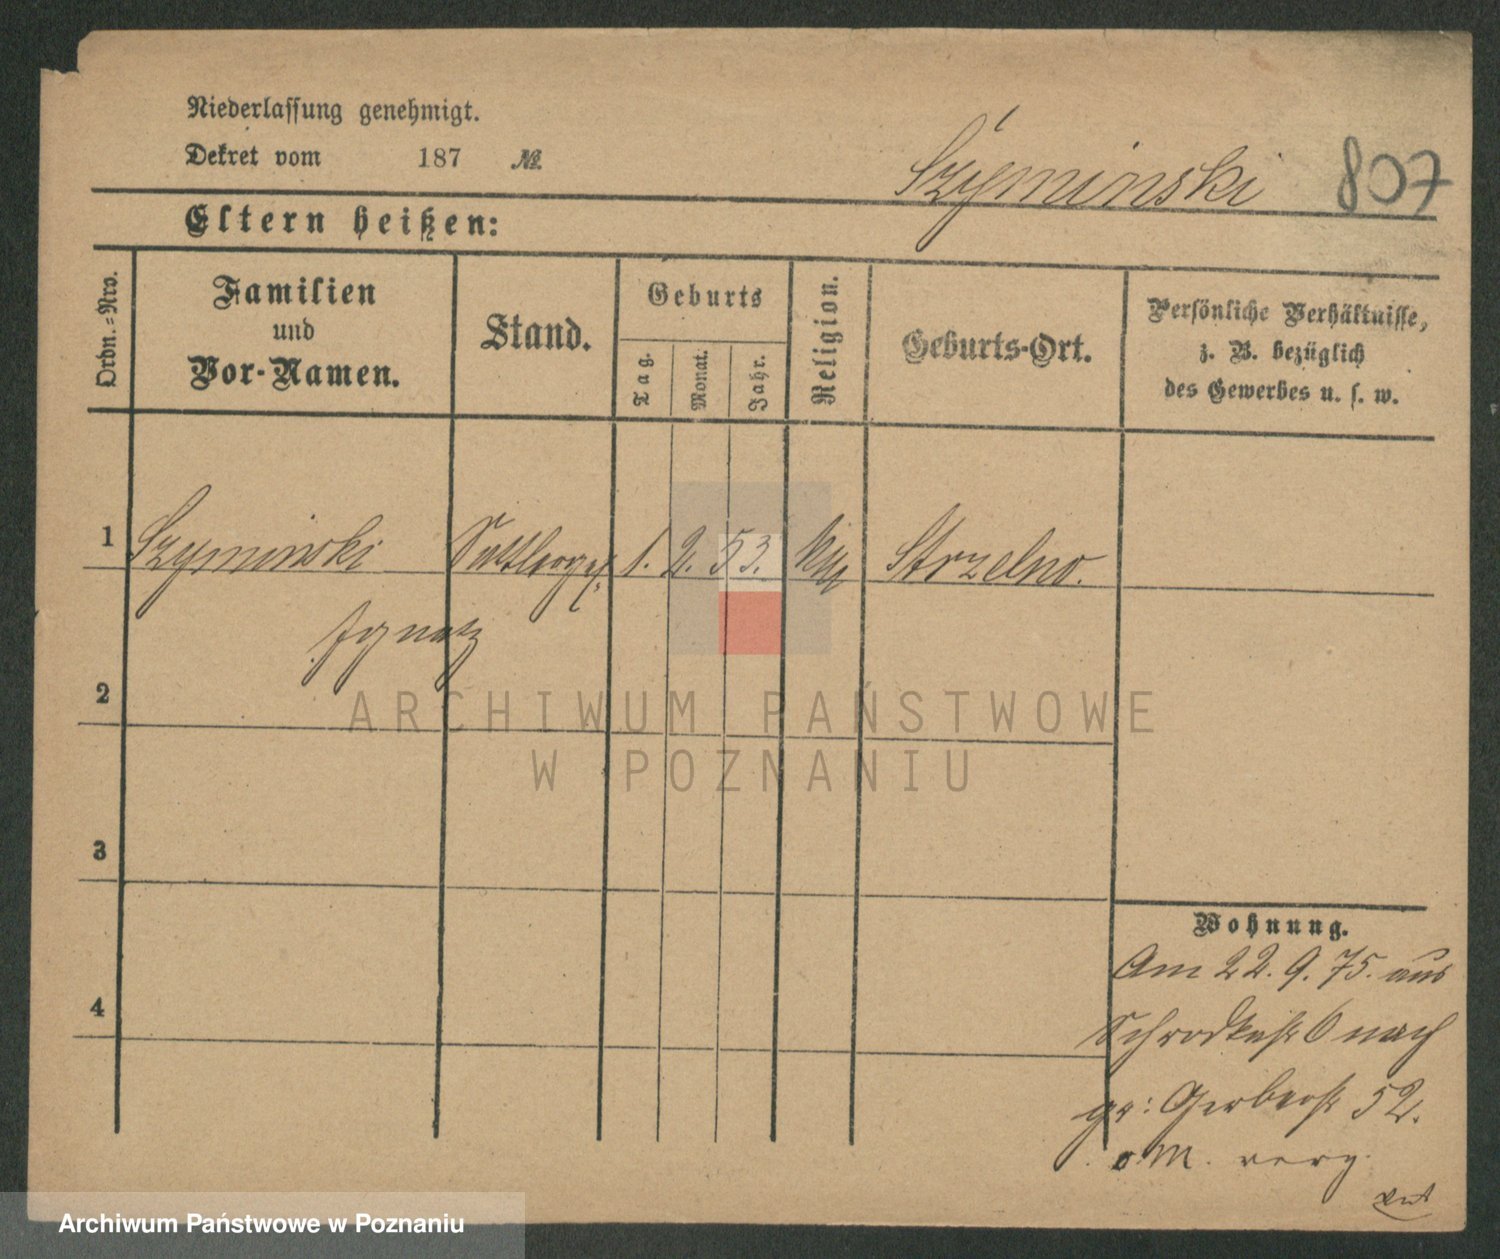 Niederlassung genehmigt.
Dekret vom 187 №
Szyminski 807
Eltern heißen:
Ordn.-Nro.
Familien
und
Vor-Namen.
Stand.
Geburts
Tag.
Monat.
Jahr.
Religion.
Geburts-Ort.
Persönliche Verhältnisse,
z. B. bezüglich
des Gewerbes u. s. w.
1 Szyminski Sattlerges. 1. 2. 53. kth Strzelno.
Ignatz
2
ARCHIWUM PAŃSTWOWE
W POZNANIU
3
Wohnung.
Am 22. 9. 75. aus
4
Schrodkastr 6 nach
gr: Gerberstr 52.
Archiwum Państwowe w Poznaniu